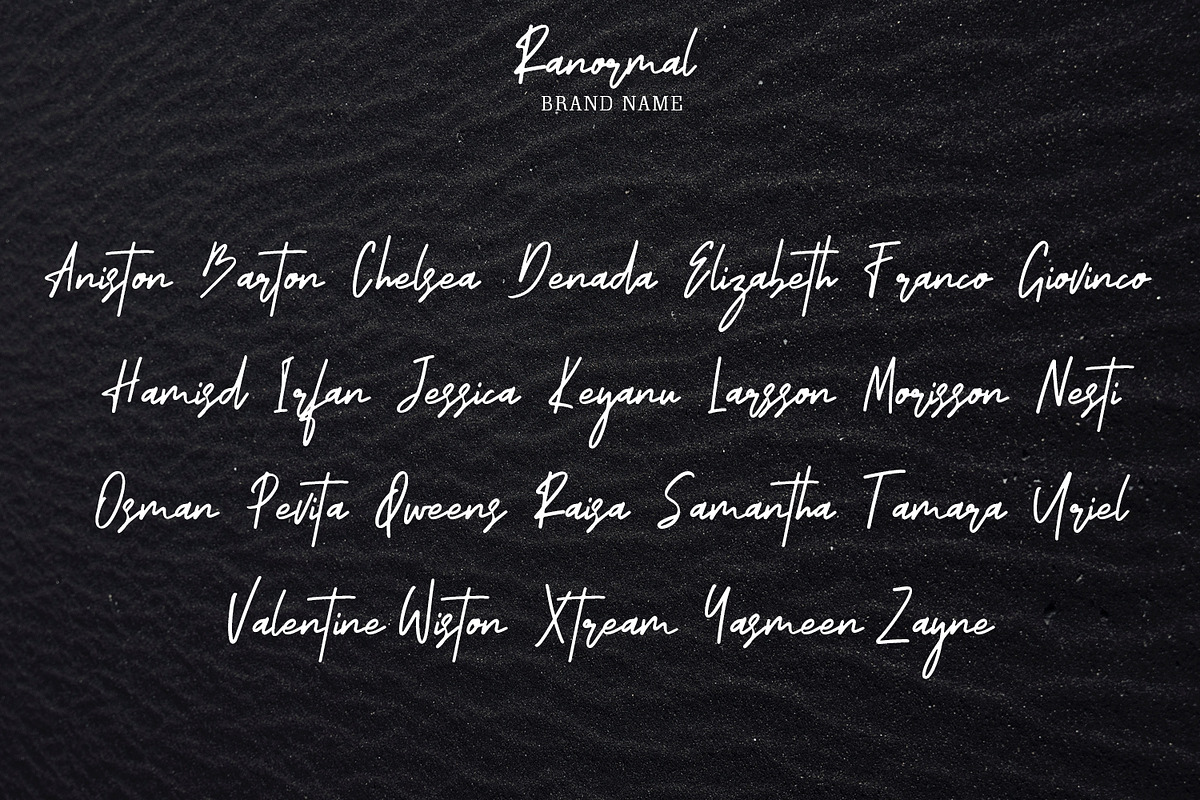 Ranormal
BRAND NAME
Aniston Barton Chelsea Denada Elizabeth Franco Giovinco
Hamisd Irfan Jessica Keyanu Larsson Morisson Nesti
Osman Pevita Qweens Raisa Samantha Tamara Uriel
Valentine Wiston Xtream Yasmeen Zayne